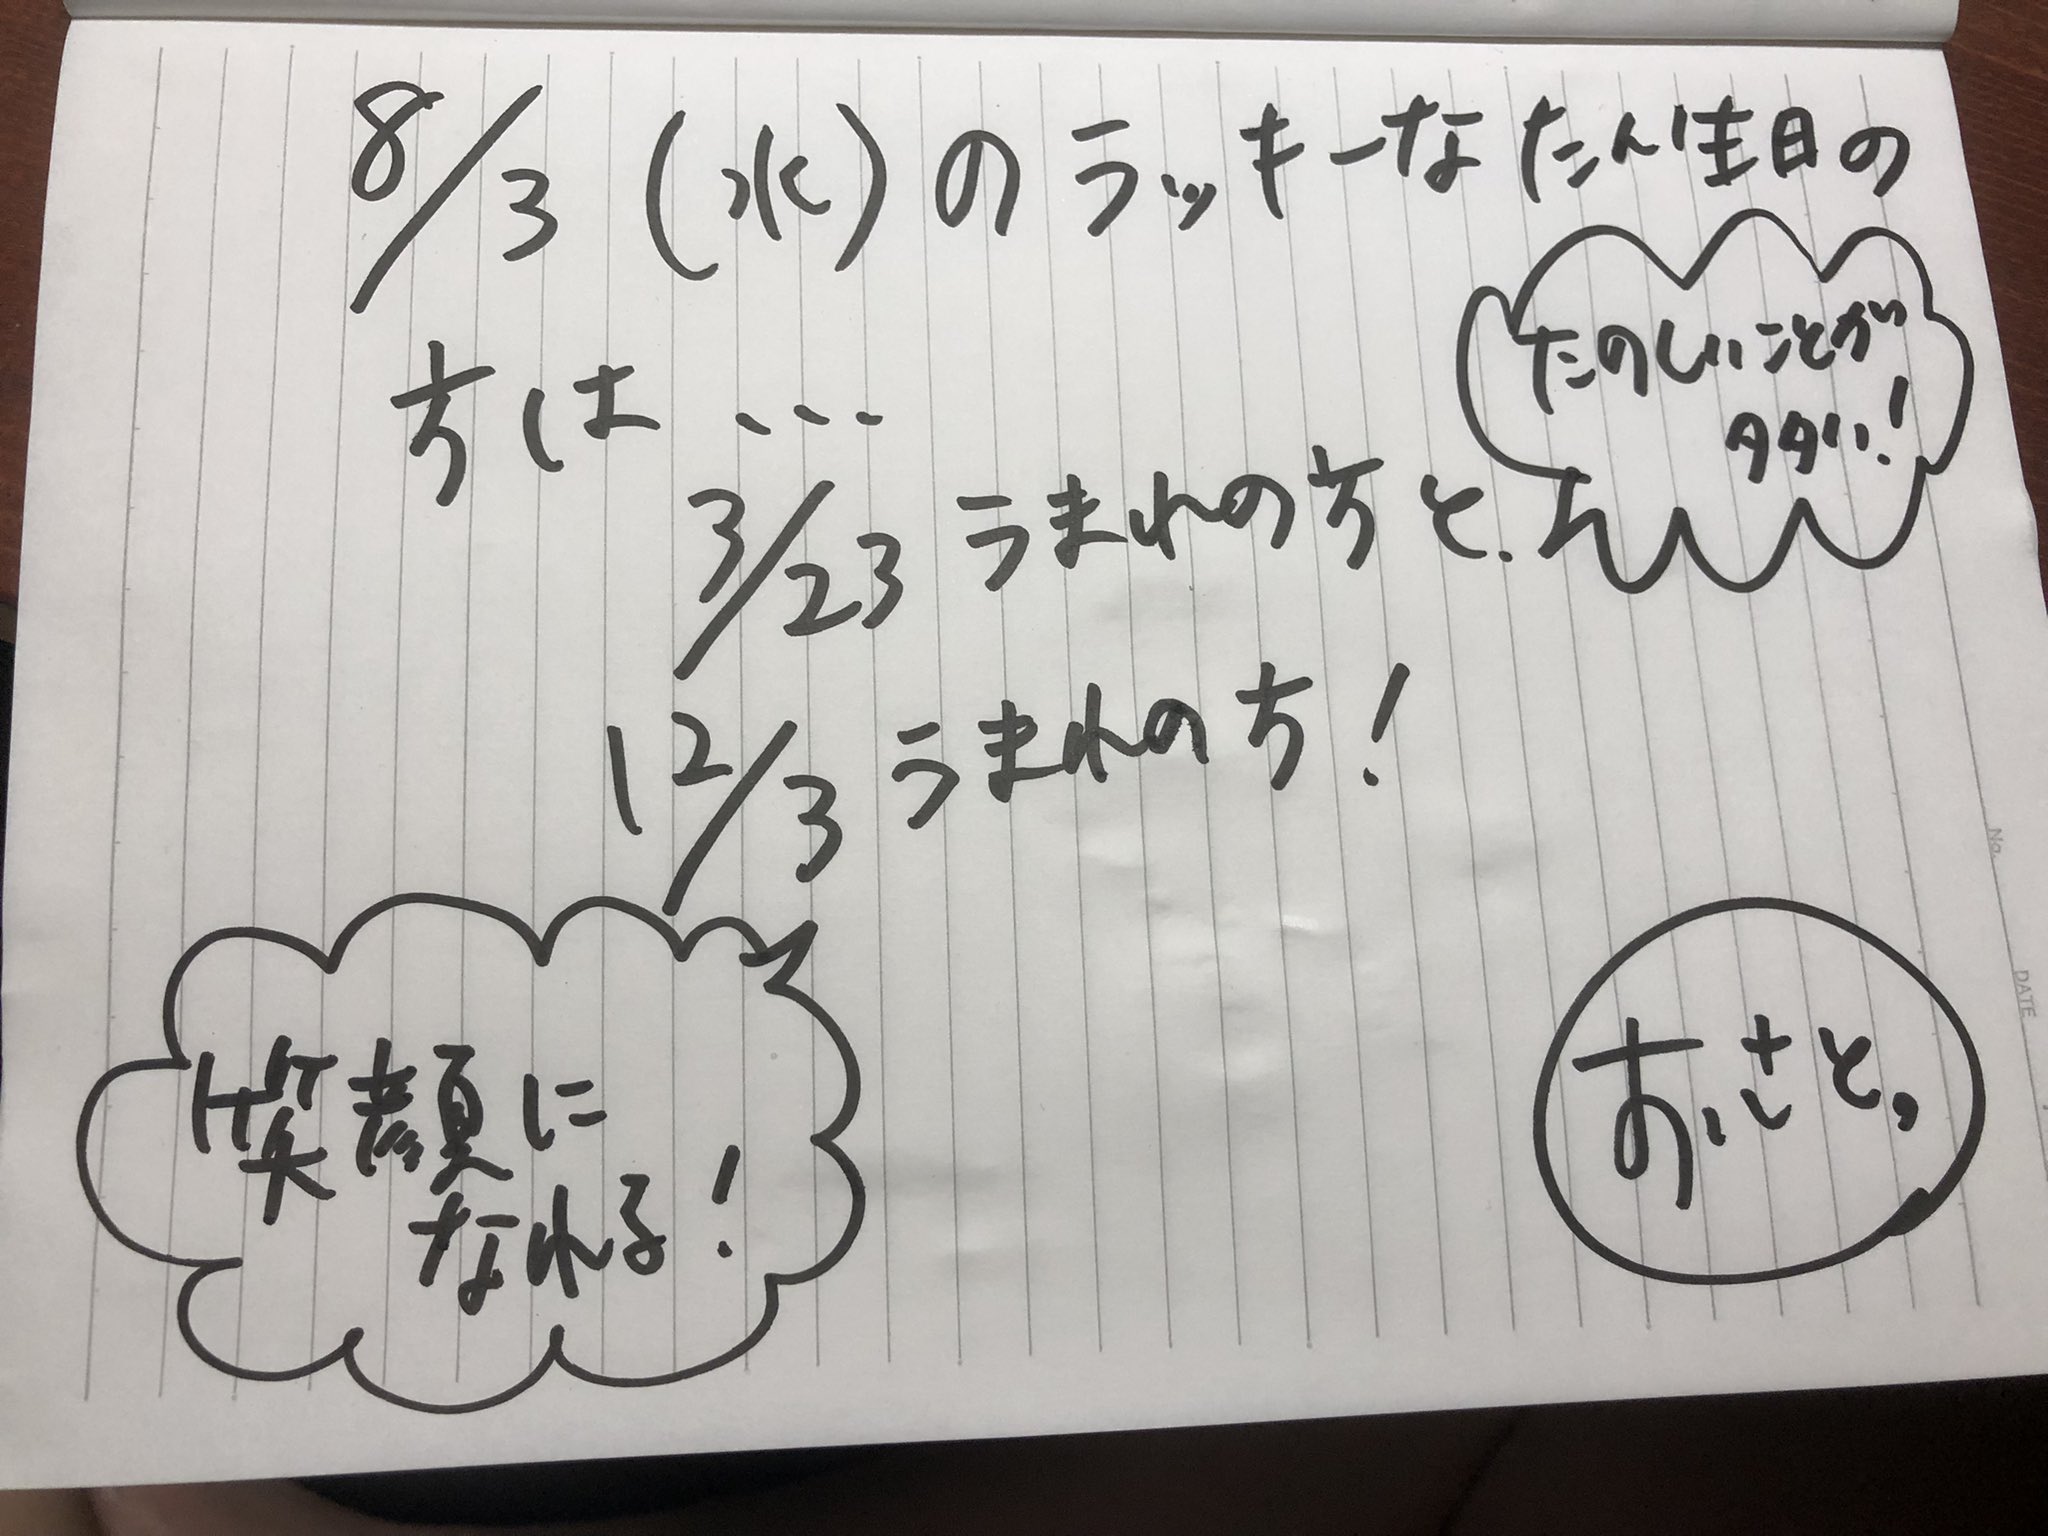 8/3(水)のラッキーなたん生日の
方は...
たのしいことが
タタい!
3/23うまれの方と.
12/3うまれの方!
笑顔に
なれる!
No.
DATE